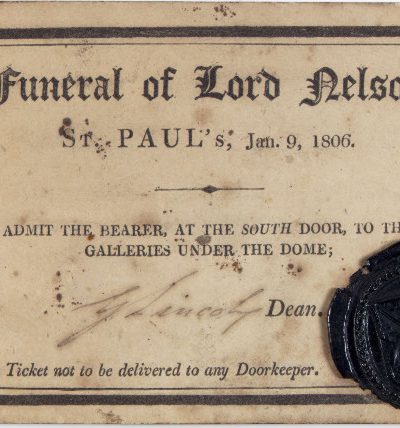 Funeral of Lord Nelso
ST. PAUL's, Jan. 9, 1806.
ADMIT THE BEARER, AT THE SOUTH DOOR, TO TH
GALLERIES UNDER THE DOME;
G Lincoln Dean.
Ticket not to be delivered to any Doorkeeper.